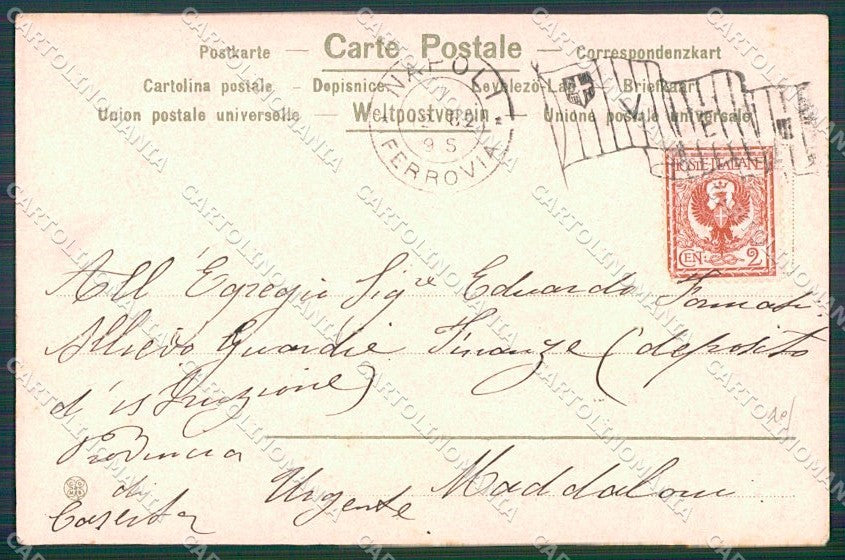 Postkarte — Carte Postale — Correspondenzkart
Cartolina postale — Dopisnice — Levelezö-Lap — Briefkaart
Union postale universelle — Weltpostverein — Unione postale universale
NAPOLI
95
FERROVIA
V E III
POSTE ITALIANE
CEN. 2
All' Egregio Sigre Eduardo
Allievo Guardie Finanze (deposito
d'istruzione)
Provincia
di
Caserta
Urgente Maddaloni
CARTOLINOMANIA